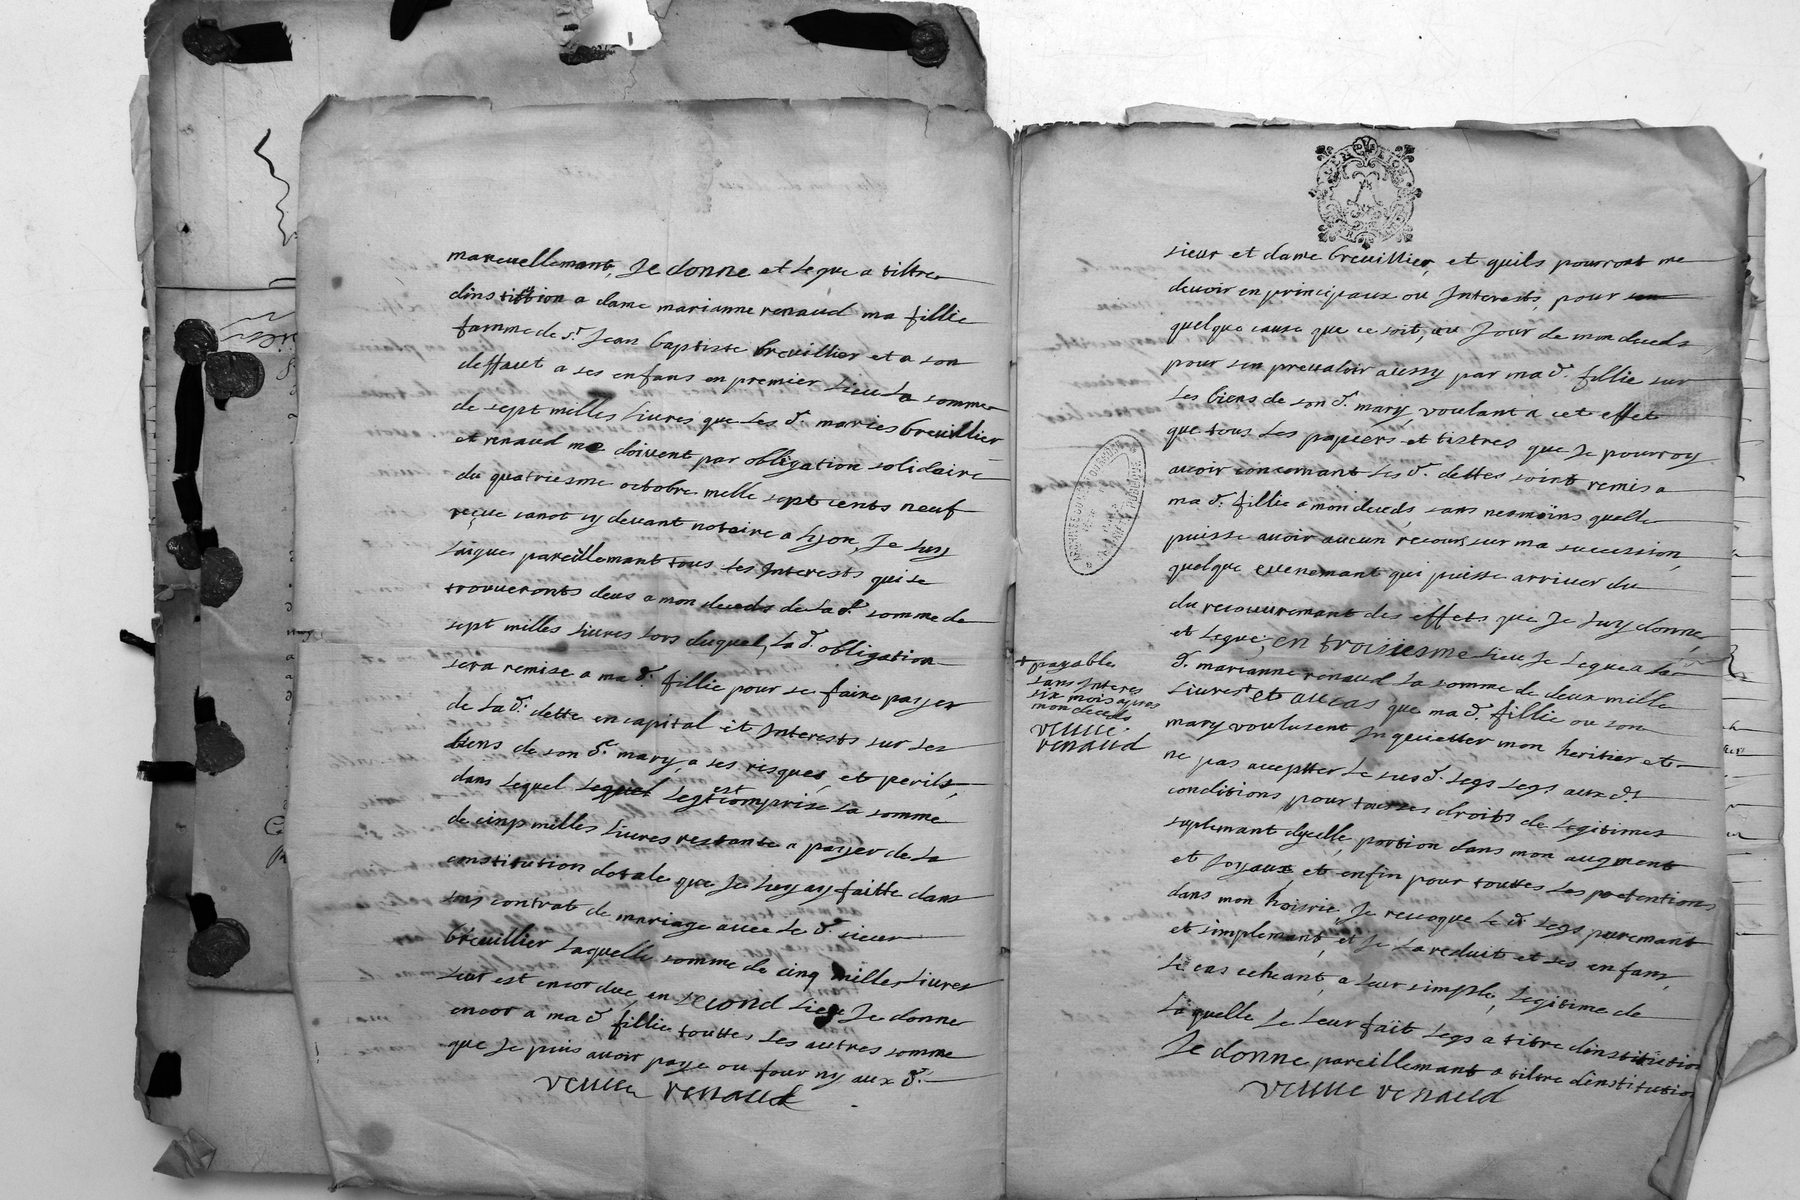 maruellemant, Je donne et legue a tiltre
dinstitution a dame marianne renaud ma fillie
famme de sr. Jean baptiste breuillier et a son
deffaut a ses enfans en premier lieu La somme
de sept milles livres que Les d. maries breuillier
et renaud me doivent par obligation solidaire
du quatriesme octobre mille sept cents neuf
reçue canot cy devant notaire a lyon, Je luy
laigue pareillemant tous Les Interests qui se
trouveronts deus a mon deceds de La d. somme de
sept milles livres lors duquel, La d. obligation
sera remise a ma d. fillie pour se faire payer
de La d. dette en capital et Interests sur Les
biens de son d. mary, a ses risques, et perils,
dans lequel lequel legt est comprise La somme
de cinq milles livres restante a payer de La
constitution dotale que Je luy ay faitte dans
son contrat de mariage avec Le d. sieur
breuillier Laquelle somme de cinq milles livres
leur est encor due, en second lieu Je donne
encor a ma d. fillie touttes Les autres somme
que Je puis avoir paye ou fourny aux d.
veuve renaud
sieur et dame breuillier, et quils pourront me
devoir en principaux ou Interests, pour
quelque cause que ce soit, au Jour de mon deceds,
pour sen prevaloir aussy par ma d. fillie sur
Les biens de son d. mary, voulant a cet effet
que tous Les papiers et tistres que Je pourroy
avoir concernant Les d. dettes soint remis a
ma d. fillie a mon deceds, sans neomoins quelle
puisse avoir aucun recours sur ma succession,
quelque evenemant qui puisse arriver du
du recouvremant des effets que Je luy donne,
et legue, en troisiesme lieu Je legue a La
d. marianne renaud La somme de deux mille
livres + et au cas que ma d. fillie ou son
mary voulusent Inquietter mon heritier et
ne pas accepter Le sus d. Legs Legs aux d.
conditions pour tous ses droits de legitimes
suplemant dycelle, portion dans mon augment
et Joyaux et enfin pour touttes Les pretentions
dans mon hoisrie, Je revoque Le d. Legs puremant
et simplemant, et Je La reduit et ses enfans,
Le cas echeant, a leur simple, Legitime de
Laquelle Je Leur fait Legs a titre dinstitution
Je donne pareillemant a tiltre dinstitution
veuve renaud
+ payable
sans Interes
six mois apres
mon deceds
veuve
renaud